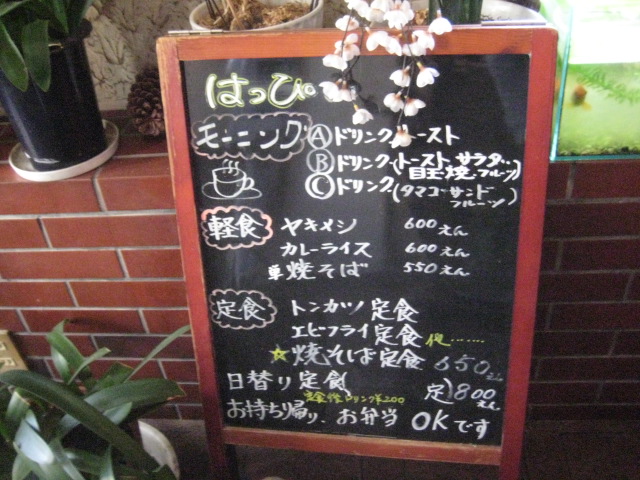 はっぴー
モーニング Ⓐドリンク、トースト
Ⓑドリンク(トースト サラダ.. 目玉焼 フルーツ)
Ⓒドリンク(タマゴサンド フルーツ)
軽食 ヤキメシ 600えん
カレーライス 600えん
焼そば 550えん
定食 トンカツ定食
エビフライ定食 他……
☆焼そば定食 650えん
日替り定食 定)800えん
定食後ドリンク
お持ち帰り、お弁当 OKです